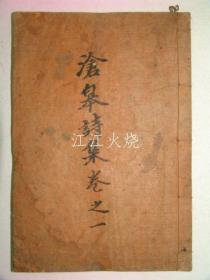 滄皋詩集卷之一
江江火烧